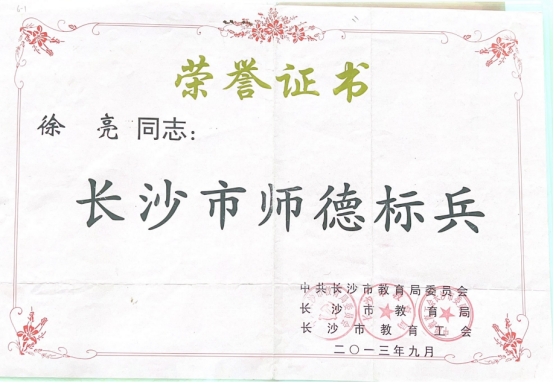 荣誉证书
徐 亮 同志：
长沙市师德标兵
中共长沙市教育局委员会
长沙市教育局
长沙市教育工会
二〇一三年九月